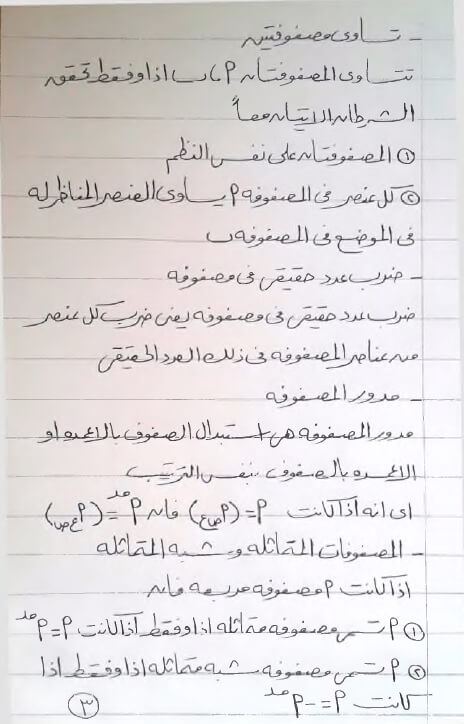 - تساوى مصفوفتين
تتساوى المصفوفتان P ، ب اذا وفقط تحقق
الشرطان الاتيان معاً
① المصفوفتان على نفس النظم
② كل عنصر فى المصفوفه P يساوى العنصر المناظر له
فى الموضع فى المصفوفه ب
- ضرب عدد حقيقى فى مصفوفه
ضرب عدد حقيقى فى مصفوفه يعنى ضرب كل عنصر
من عناصر المصفوفه فى ذلك العدد الحقيقى
- مدور المصفوفه
مدور المصفوفه هى استبدال الصفوف بالاعمده او
الاعمده بالصفوف بنفس الترتيب
اى انه اذا كانت P = (P ص ع) فان P مد = (P ع ص)
- المصفوفات المتماثله و شبه المتماثله
اذا كانت P مصفوفه مربعه فان
① P تسمى مصفوفه متماثله اذا وفقط اذا كانت P = P مد
② P تسمى مصفوفه شبه متماثله اذا وفقط اذا
كانت P = -P مد
٣